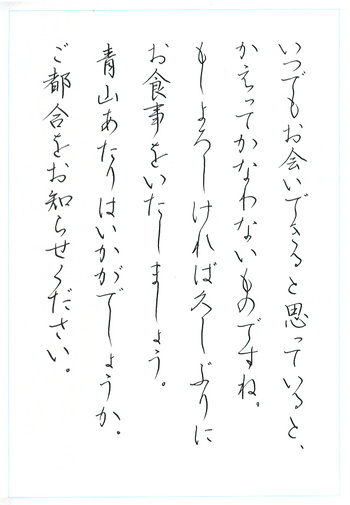 いつでもお会いできると思っていると、
かえってかなわないものですね。
もしよろしければ久しぶりに
お食事をいたしましょう。
青山あたりはいかがでしょうか。
ご都合をお知らせください。